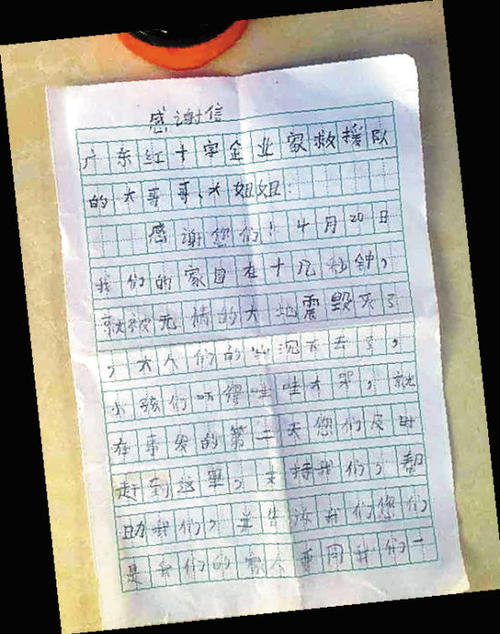 感谢信
广东红十字企业家救援队
的大哥哥、大姐姐:
感谢您们!4月20日
我们的家园在十几秒钟,
就被无情的大地震毁灭了
,大人们的心沉下去了,
小孩们吓得哇哇大哭,就
在来发的第二天您们及时
赶到这里,支持我们,帮
助我们,并告诉我们您们
是我们的家人重用我们一